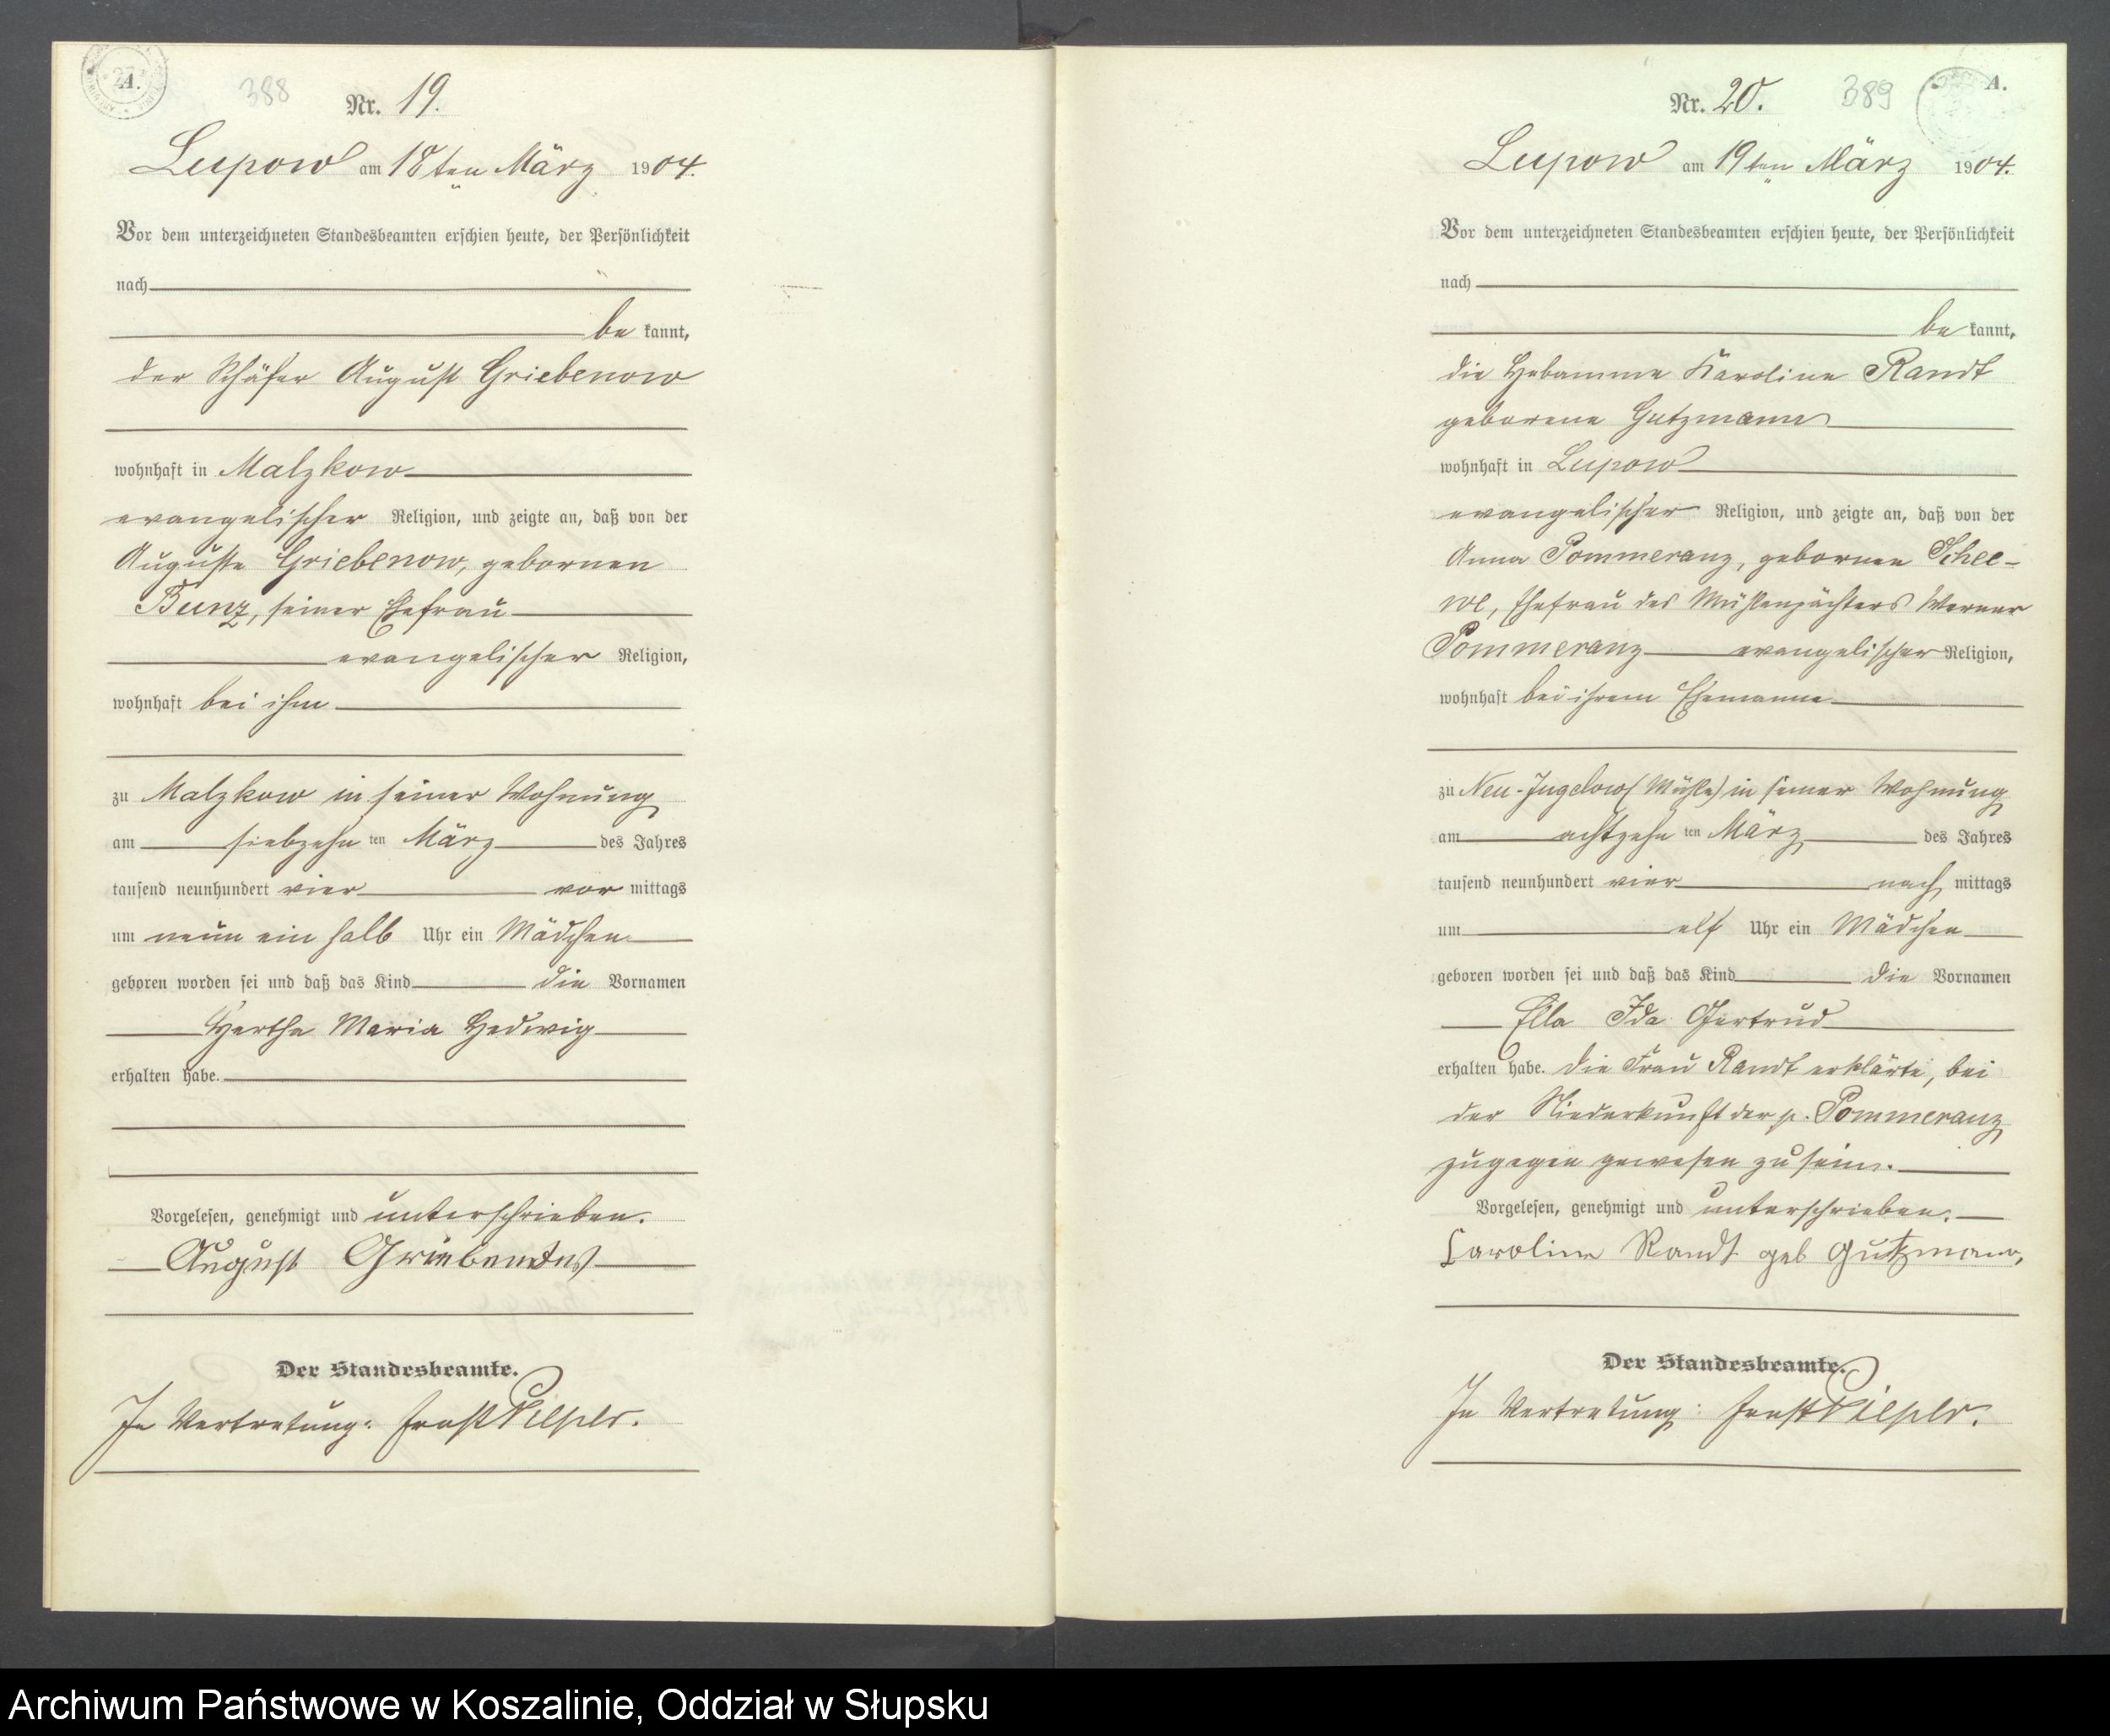 A.
388
Nr. 19.
Lupow am 18ten März 1904.
Vor dem unterzeichneten Standesbeamten erschien heute, der Persönlichkeit
nach
be kannt,
der Schäfer August Griebenow
wohnhaft in Malzkow
evangelischer Religion, und zeigte an, daß von der
Auguste Griebenow, gebornen
Bunz, seiner Ehefrau
evangelischer Religion,
wohnhaft bei ihm
zu Malzkow in seiner Wohnung
am siebzehn ten März des Jahres
tausend neunhundert vier vor mittags
um neun ein halb Uhr ein Mädchen
geboren worden sei und daß das Kind die Vornamen
Hertha Maria Hedwig
erhalten habe.
Vorgelesen, genehmigt und unterschrieben.
August Griebenow
Der Standesbeamte.
In Vertretung: Ernst
389
A.
Nr. 20.
Lupow am 19ten März 1904.
Vor dem unterzeichneten Standesbeamten erschien heute, der Persönlichkeit
nach
be kannt,
die Hebamme Karoline Randt
geborene Gutzmann
wohnhaft in Lupow
evangelischer Religion, und zeigte an, daß von der
Anna Pommeranz, gebornen Schee-
we, Ehefrau des Mühlenpächters Werner
Pommeranz evangelischer Religion,
wohnhaft bei ihrem Ehemanne
zu Neu-Jugelow (Mühle) in seiner Wohnung
am achtzehn ten März des Jahres
tausend neunhundert vier nach mittags
um elf Uhr ein Mädchen
geboren worden sei und daß das Kind die Vornamen
Ella Ida Gertrud
erhalten habe. Die Frau Randt erklärte, bei
der Niederkunft der p. Pommeranz
zugegen gewesen zu sein.
Vorgelesen, genehmigt und unterschrieben.
Caroline Randt geb Gutzmann,
Der Standesbeamte.
In Vertretung: Ernst
Archiwum Państwowe w Koszalinie, Oddział w Słupsku